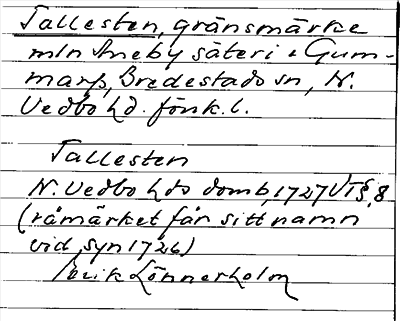 Tallesten, gränsmärke
mln Aneby säteri o Gum-
marp, Bredestads sn, N.
Vedbo hd. Jönk. l.
Tallesten
N. Vedbo hds domb, 1727 VT §. 8
(råmärket får sitt namn
vid syn 1726)
Erik Lönnerholm